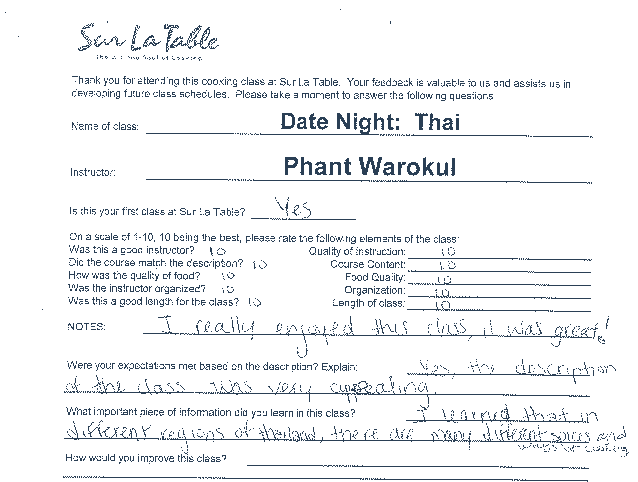 Sur La Table
The Art and Soul of Cooking
Thank you for attending this cooking class at Sur La Table. Your feedback is valuable to us and assists us in
developing future class schedules. Please take a moment to answer the following questions
Name of class: Date Night: Thai
Instructor: Phant Warokul
Is this your first class at Sur La Table? Yes
On a scale of 1-10, 10 being the best, please rate the following elements of the class:
Was this a good instructor? 10 Quality of instruction: 10
Did the course match the description? 10 Course Content: 10
How was the quality of food? 10 Food Quality: 10
Was the instructor organized? 10 Organization: 10
Was this a good length for the class? 10 Length of class: 10
NOTES: I really enjoyed this class, it was great!
Were your expectations met based on the description? Explain: Yes, the description
of the class was very appealing.
What important piece of information did you learn in this class? I learned that in
different regions of thailand, there are many different spices and
ways of cooking
How would you improve this class?